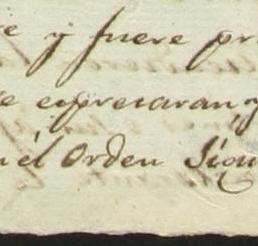 e y fuere pr
e expresaran y
n él Orden Sigu